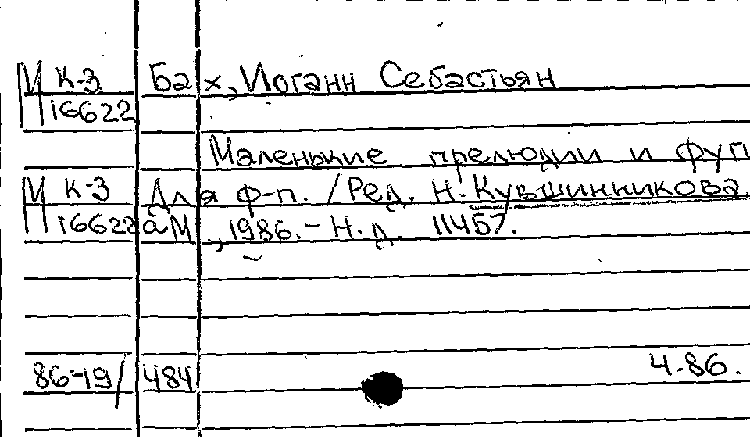 М к-3 Бах, Иоганн Себастьян
16622
Маленькие прелюдии и фуг
М к-3 Для ф-п. /Ред. Н. Кувшинникова
16622а М, 1986. - Н.д. 11457.
86-19/484 4.86.